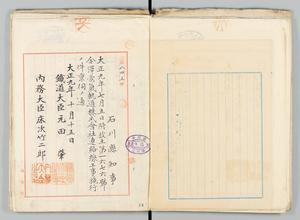 石川縣知事
大正九年七月五日附政土第一六七六號
金澤電氣軌道株式會社連絡線工事施行
ノ件稟伺ノ通
大正九年十月十五日
鐵道大臣元田肇
内務大臣床次竹二郎